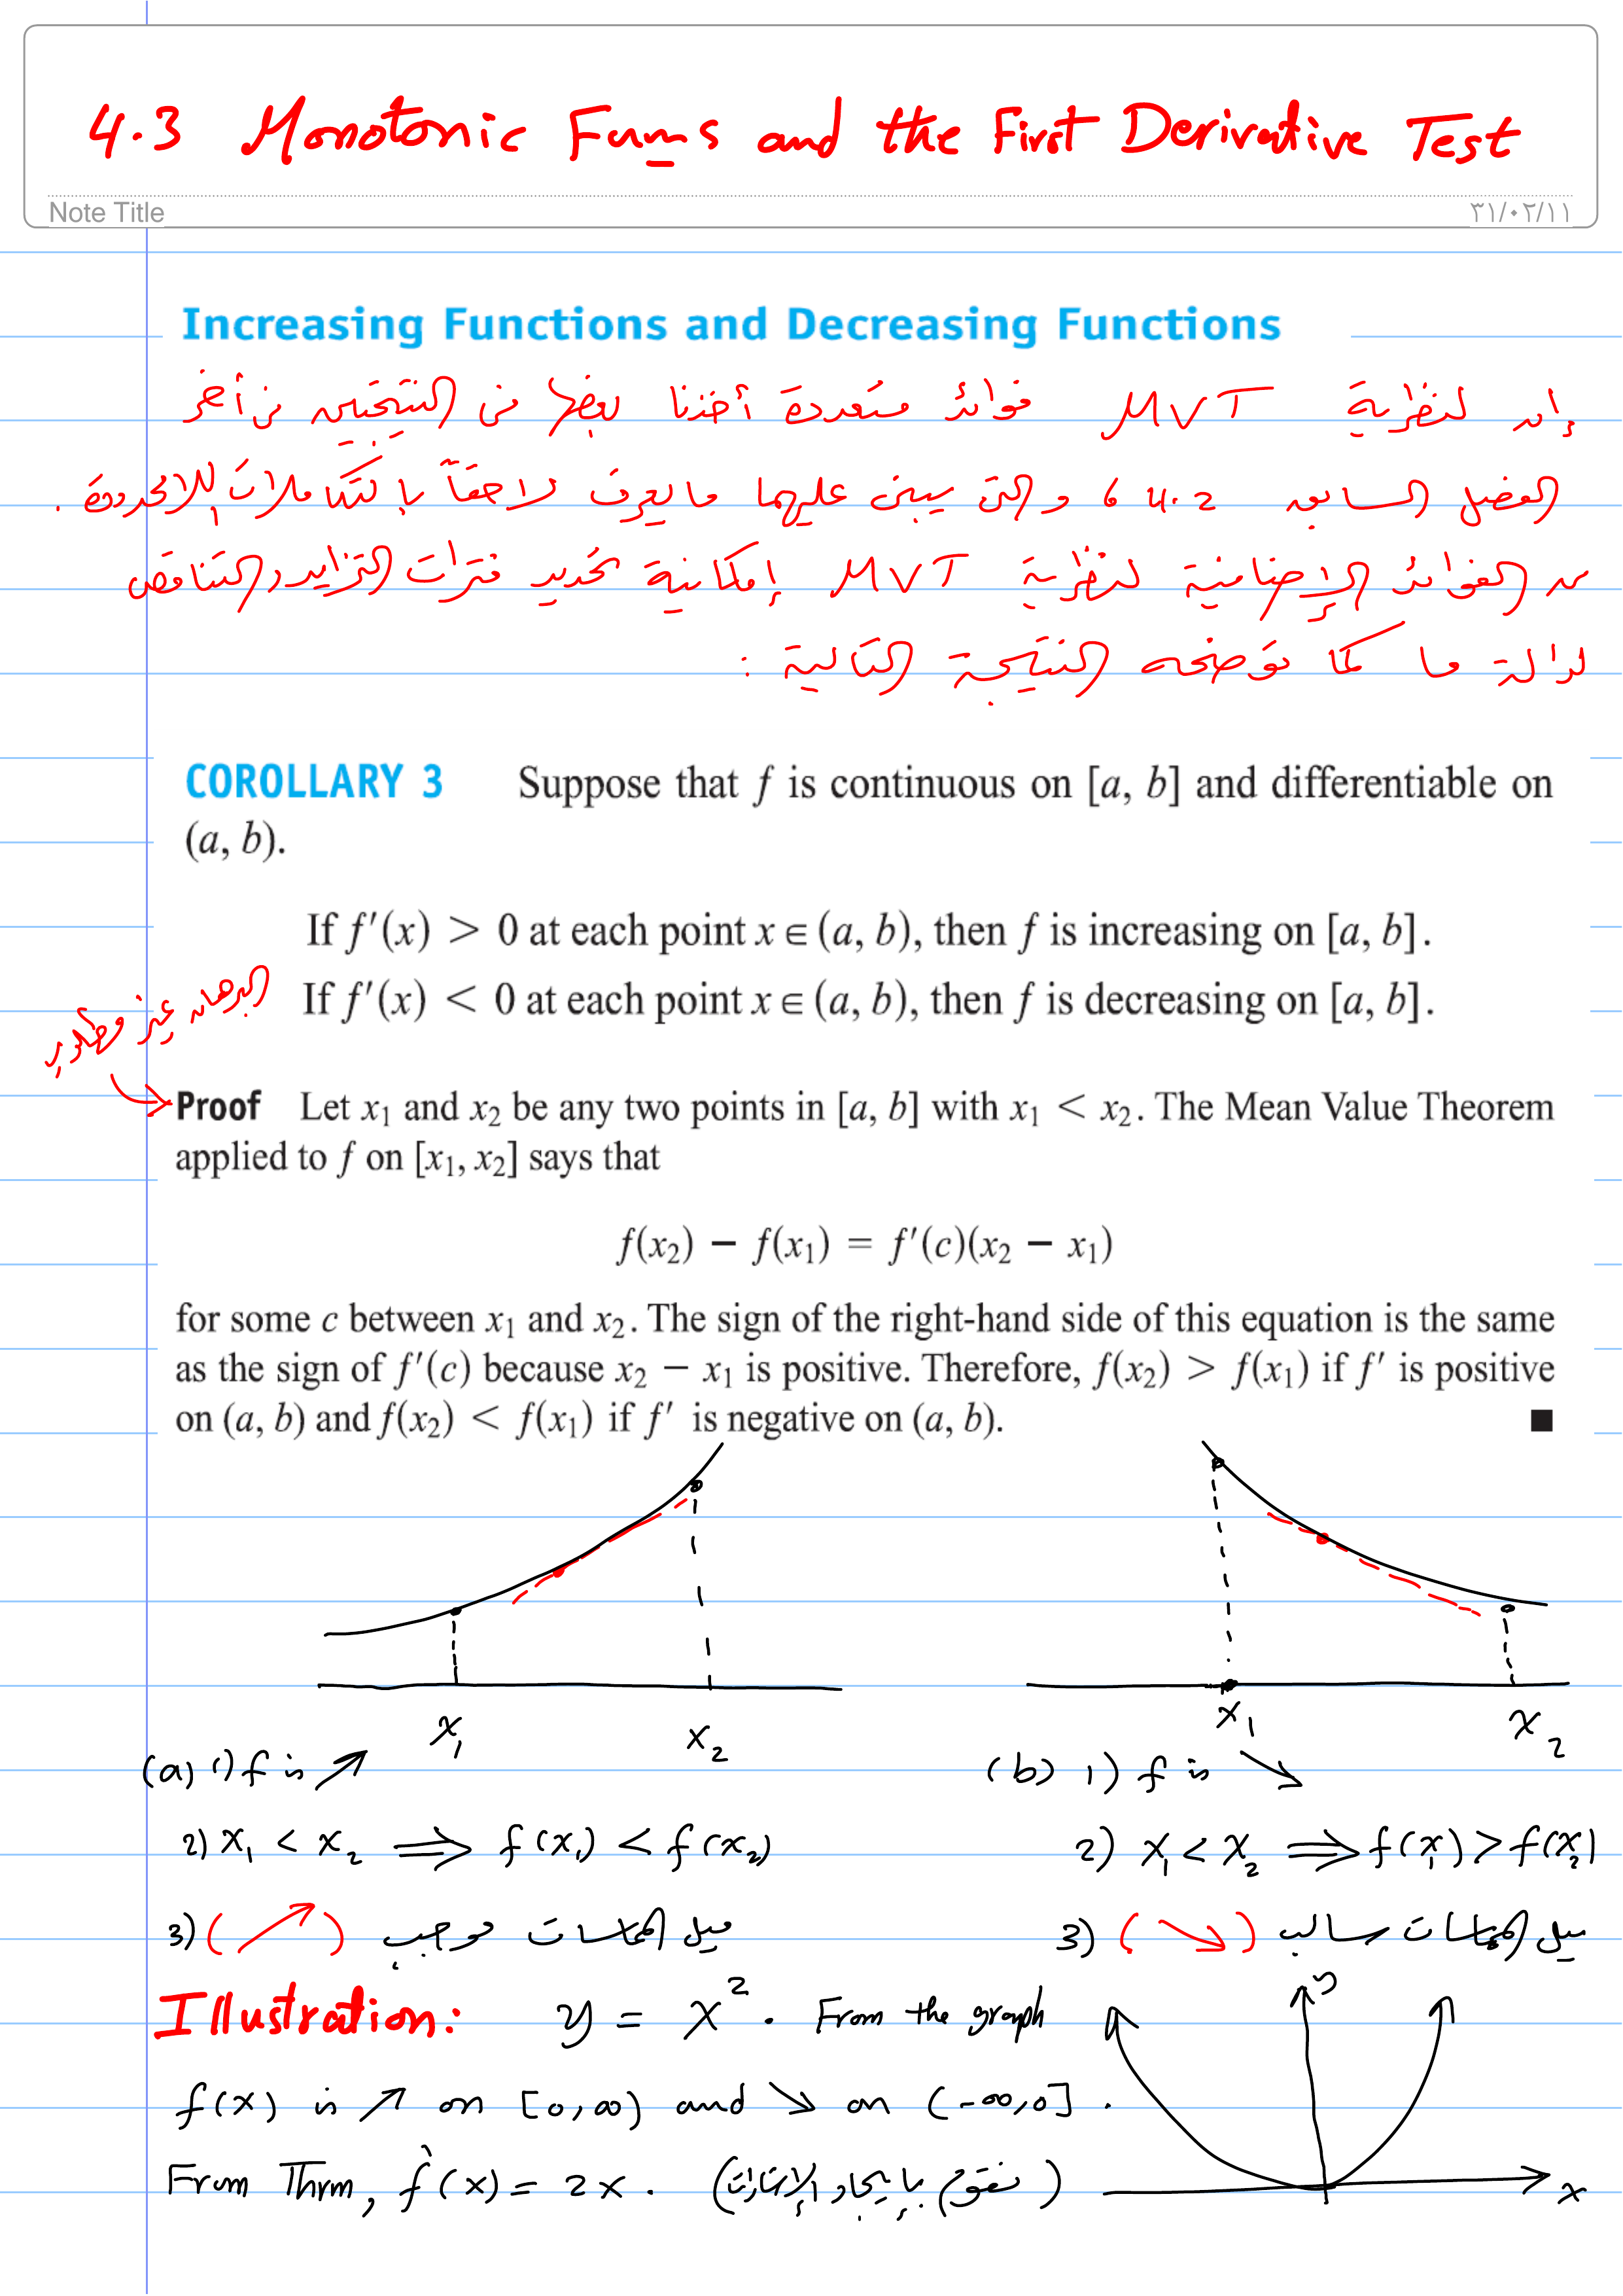 4.3 Monotonic Funns and the First Derivative Test
Note Title
٣١/٠٢/١١
Increasing Functions and Decreasing Functions
إن لنظرية MVT فوائد متعددة أخذنا بعضها في النتيجتين من آخر
الفصل السابق 4.2 ، والتي يبنى عليهما ما يعرف لاحقاً بالتكاملات اللامحدودة .
من الفوائد الإضافية لنظرية MVT إمكانية تحديد فترات التزايد والتناقص
لدالة ما كما توضحه النتيجة التالية :
COROLLARY 3 Suppose that f is continuous on [a, b] and differentiable on
(a, b).
If f′(x) > 0 at each point x ∈ (a, b), then f is increasing on [a, b].
If f′(x) < 0 at each point x ∈ (a, b), then f is decreasing on [a, b].
البرهان غير مطلوب
Proof Let x₁ and x₂ be any two points in [a, b] with x₁ < x₂. The Mean Value Theorem
applied to f on [x₁, x₂] says that
f(x₂) − f(x₁) = f′(c)(x₂ − x₁)
for some c between x₁ and x₂. The sign of the right-hand side of this equation is the same
as the sign of f′(c) because x₂ − x₁ is positive. Therefore, f(x₂) > f(x₁) if f′ is positive
on (a, b) and f(x₂) < f(x₁) if f′ is negative on (a, b). ■
x₁ x₂
x₁ x₂
(a) 1) f is ↗
2) x₁ < x₂ ⟹ f(x₁) < f(x₂)
3) (↗) ميل المماسات موجب
(b) 1) f is ↘
2) x₁ < x₂ ⟹ f(x₁) > f(x₂)
3) (↘) ميل المماسات سالب
Illustration: y = x². From the graph
f(x) is ↗ on [0,∞) and ↘ on (-∞,0].
From Thrm, f′(x) = 2x. (نقوم بإيجاد الإشارات)
y
x